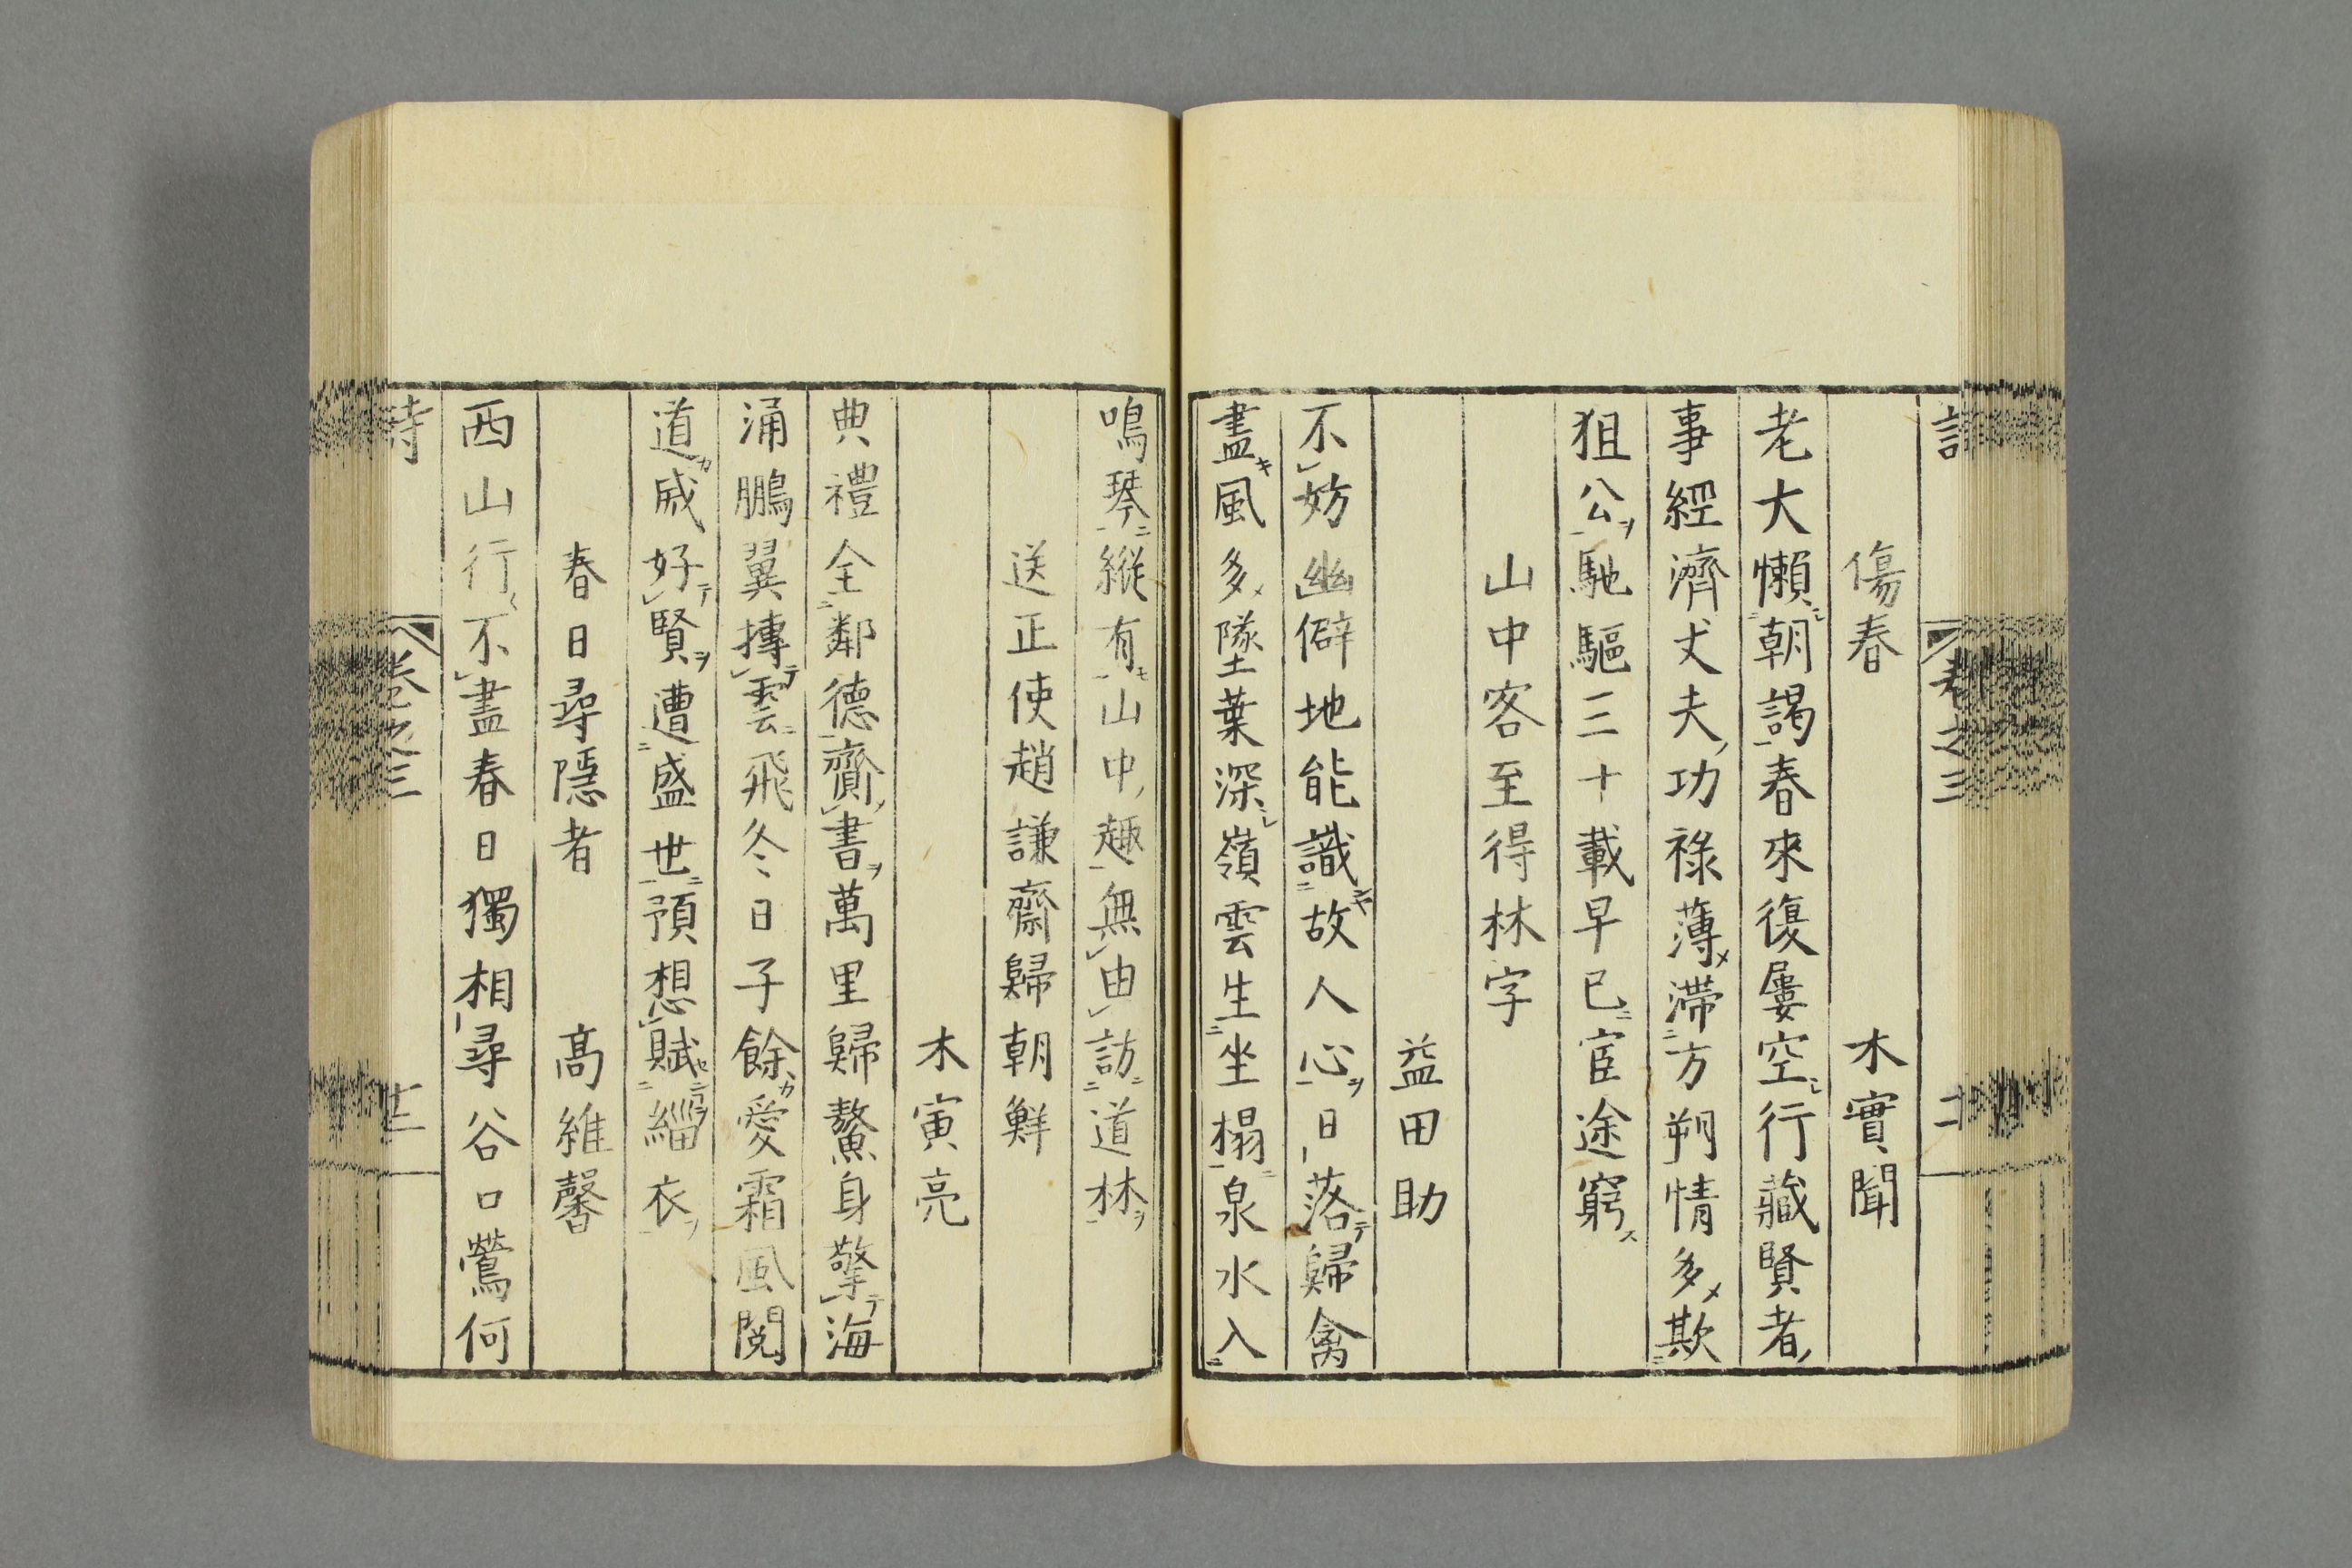 傷春　木實聞
老大懶朝謁春來復屢空行藏賢者
事經濟丈夫功祿薄滯方朔情多欺
狙公馳驅三十載早已宦途窮
山中客至得林字
益田助
不妨幽僻地能識故人心日落歸禽
盡風多墜葉深嶺雲生坐榻泉水入
鳴琴縱有山中趣無由訪道林
送正使趙謙齋歸朝鮮
木寅亮
典禮全鄰德齎書萬里歸鰲身擎海
涌鵬翼摶雲飛冬日子餘愛霜風閱
道戚好賢遭盛世預想賦緇衣
春日尋隱者　高維馨
西山行不盡春日獨相尋谷口鶯何
卷之三